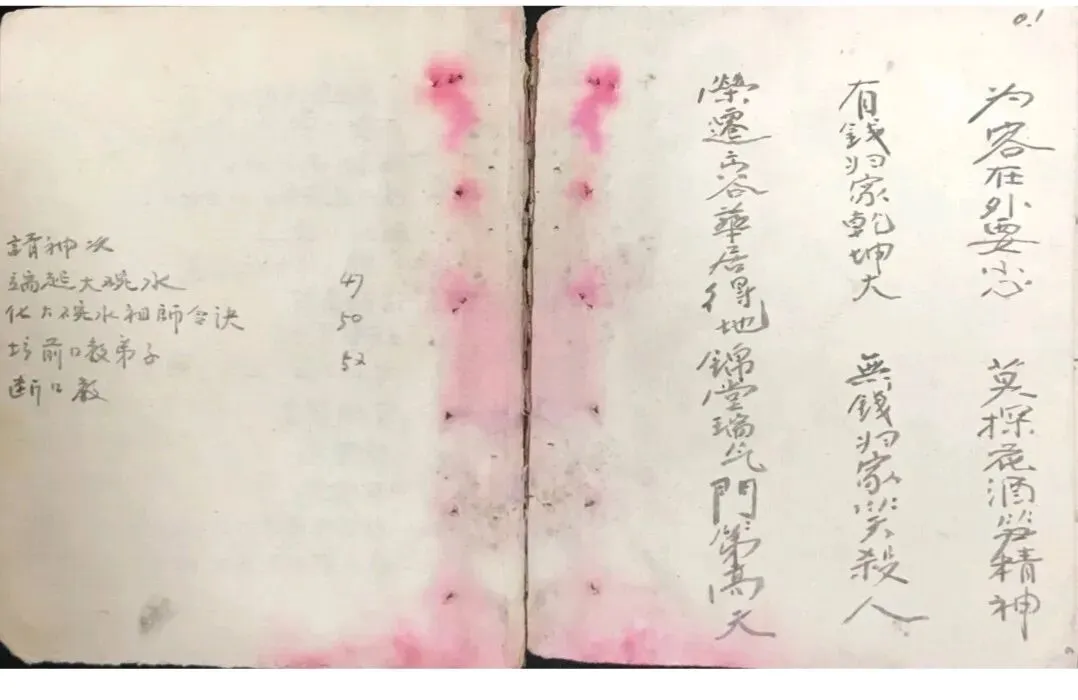 請神次
端起大碗水 47
化大碗水祖師令诀 50
坛前口教弟子 52
断口教
0.1
为客在外要小心 莫探花酒精神
有錢归家乾坤大 無錢归家笑殺人
榮遷六合華居得地 錦堂瑞气門第高天